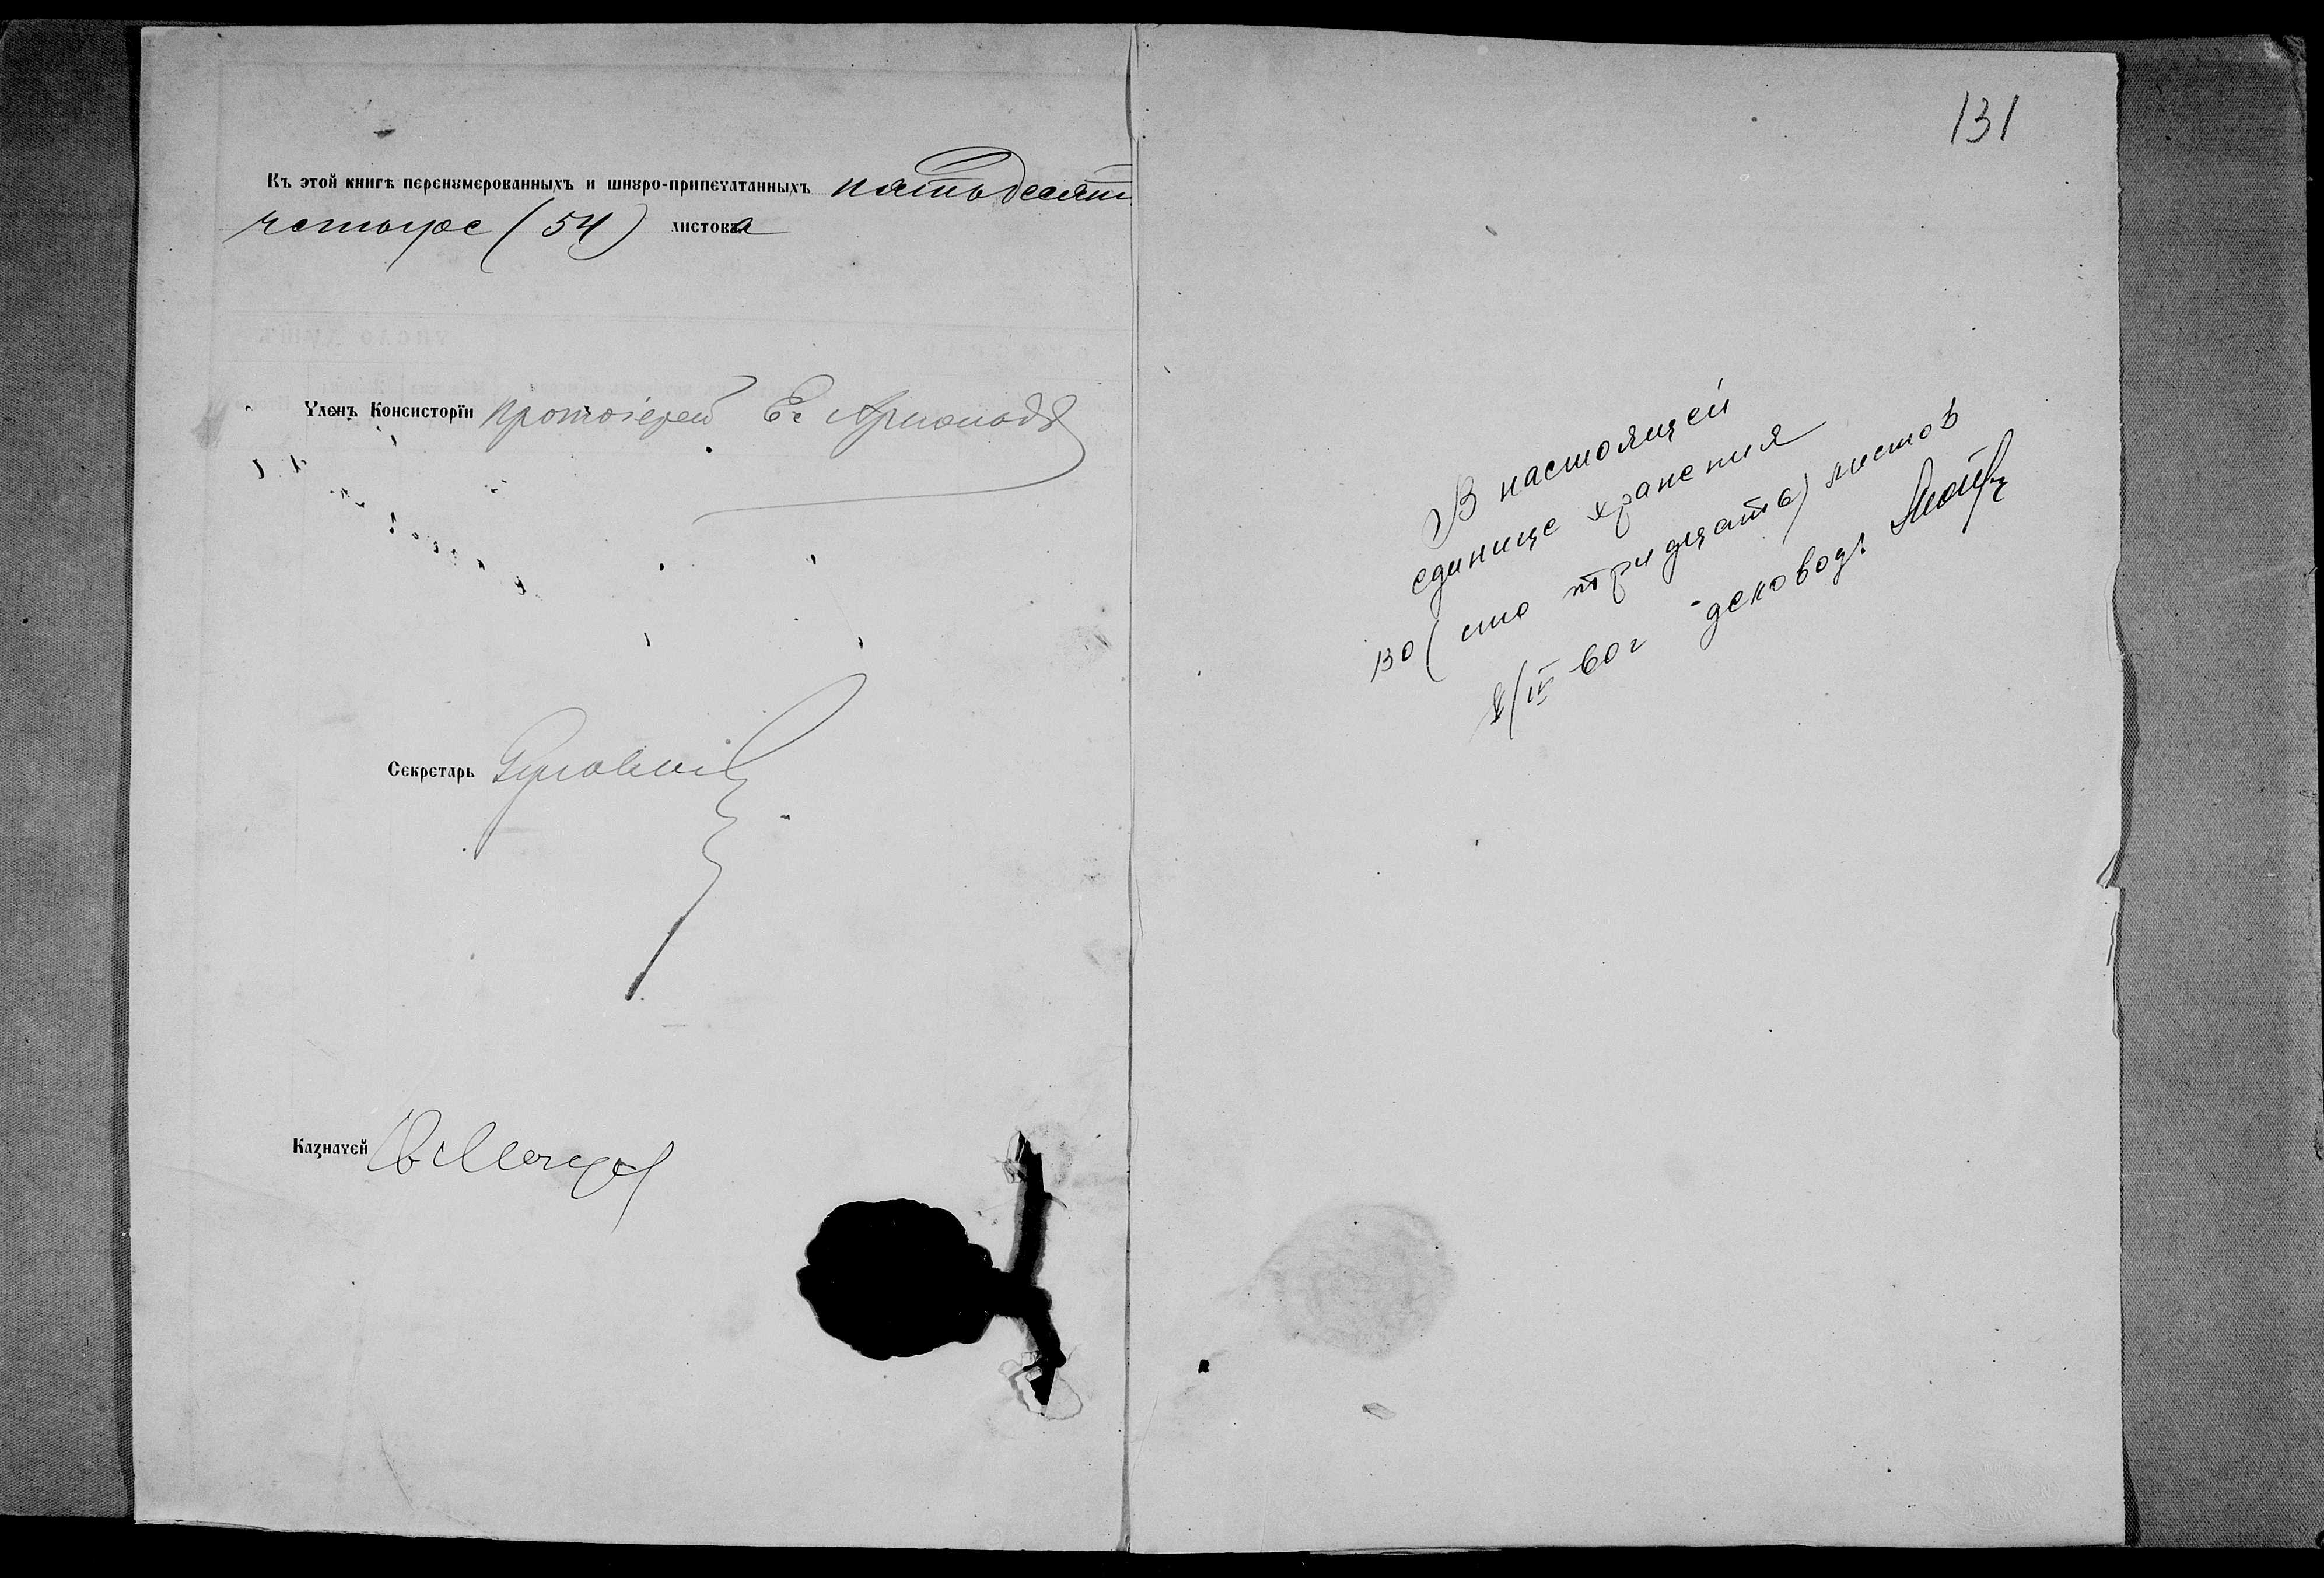 Къ этой книгѣ перенумерованныхъ и шнуро-припечатанныхъ пятьдесят
четыре (54) листова
Членъ Консисторіи протоіерей Е.
Секретарь
Казначей
131
В настоящей
единице хранения
130 (сто тридцать) листов
8/IV 60г деловод.